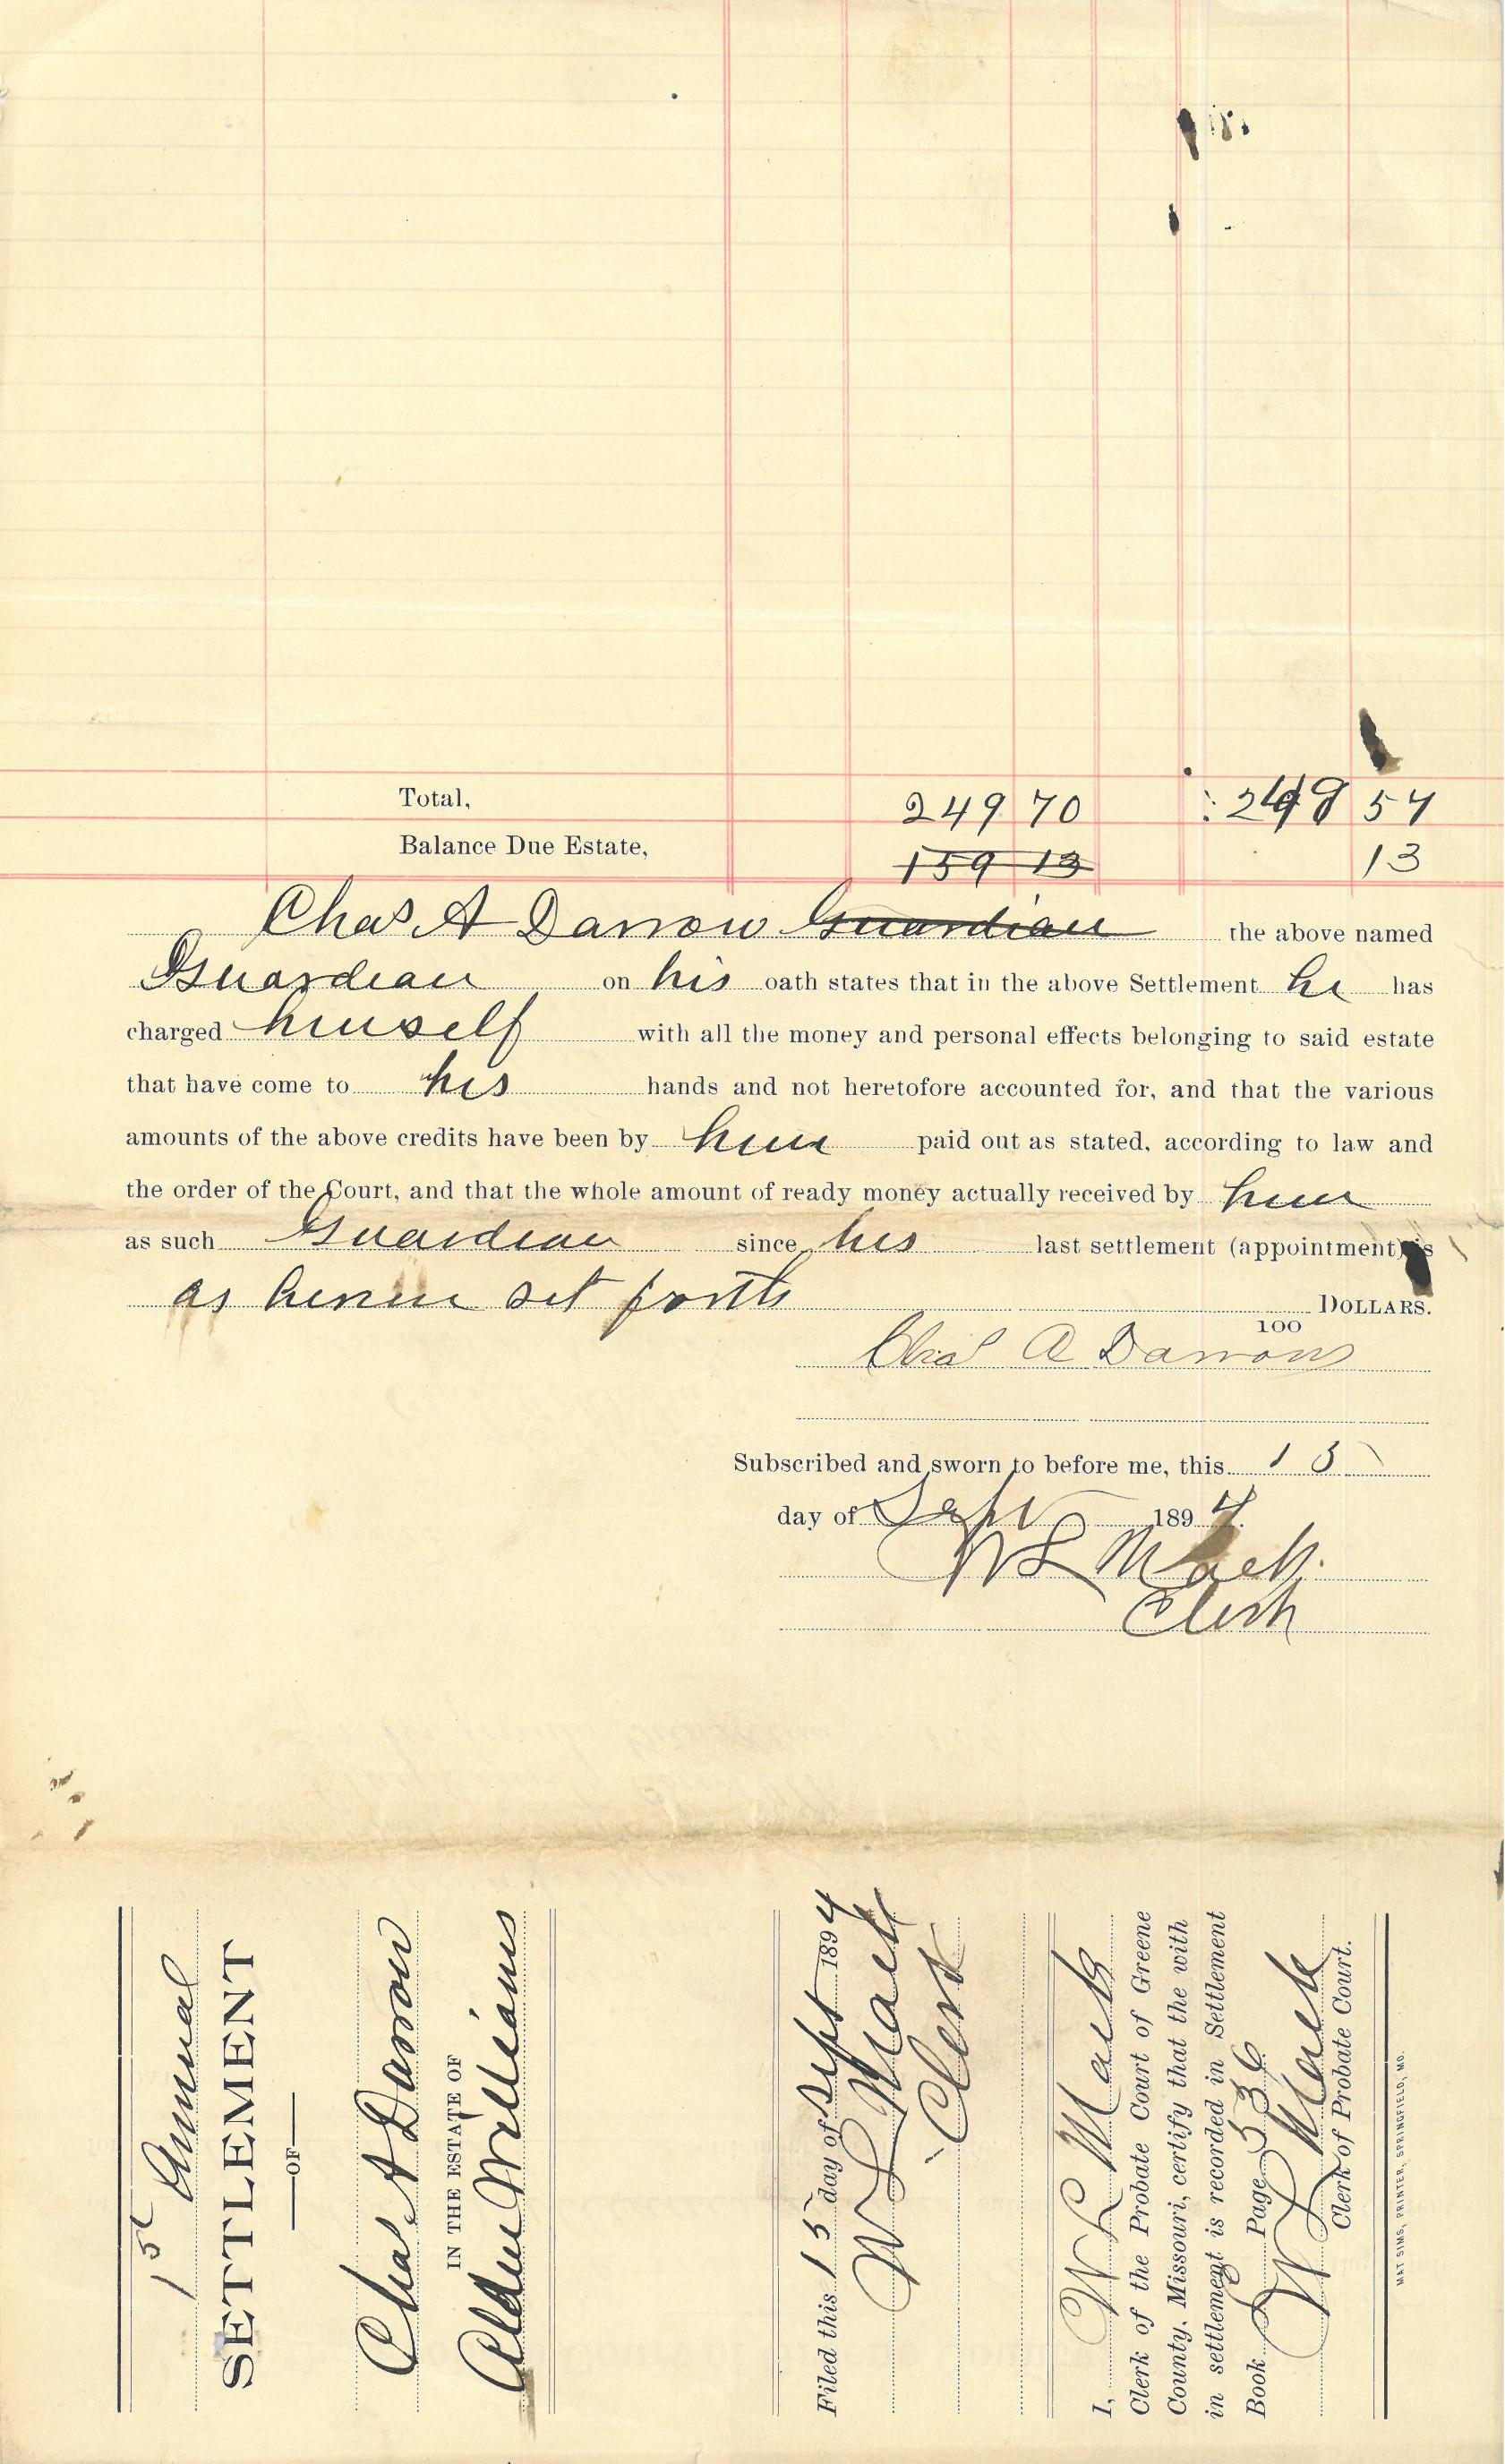 Total, 249 70 249 57
Balance Due Estate, 159 13 13
Chas. A Darrow Guardian the above named
Guardian on his oath states that in the above Settlement he has
charged himself with all the money and personal effects belonging to said estate
that have come to his hands and not heretofore accounted for, and that the various
amounts of the above credits have been by him paid out as stated, according to law and
the order of the Court, and that the whole amount of ready money actually received by him
as such Guardian since his last settlement (appointment) is
as herein set forth DOLLARS.
100
Chas A Darrow
Subscribed and sworn to before me, this 15
day of Sept 1894.
W L Mack.
Clerk
1st Annual
SETTLEMENT
OF
Chas. A Darrow
IN THE ESTATE OF
Alden Williams
Filed this 15 day of Sept 1894
W L Mack
Clerk
I, W L Mack
Clerk of the Probate Court of Greene
County, Missouri, certify that the with
in settlement is recorded in Settlement
Book Page 536
W L Mack
Clerk of Probate Court.
MAT SIMS, PRINTER, SPRINGFIELD, MO.